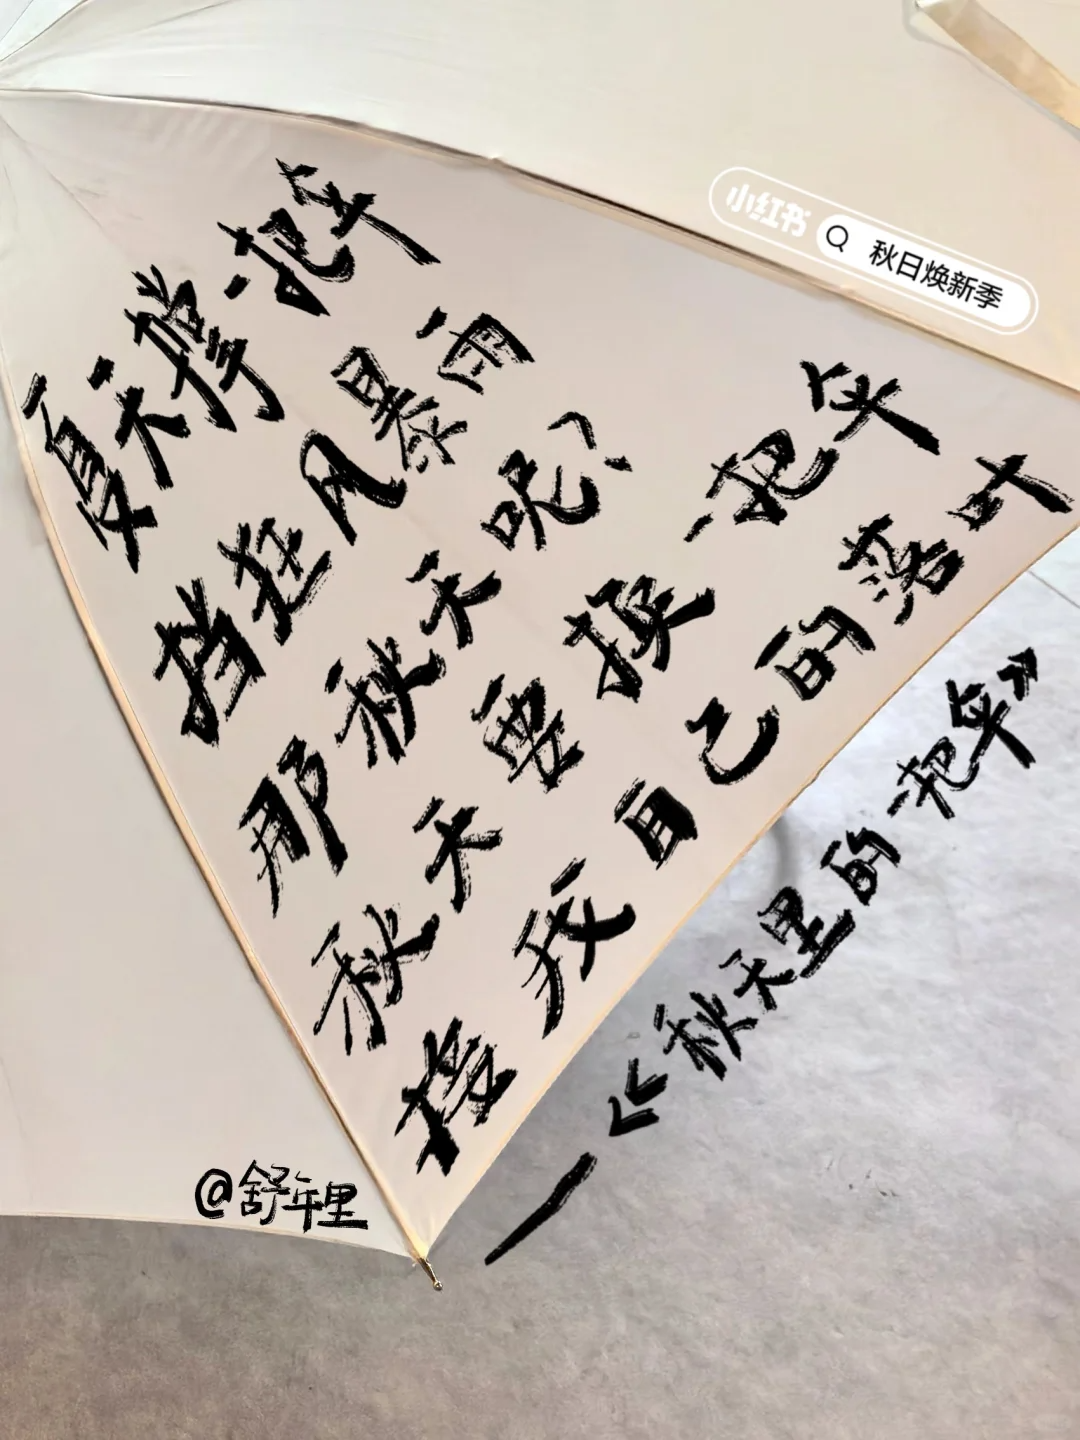 夏天撑一把伞
挡狂风暴雨
那秋天呢？
秋天要换一把伞
接我自己的落叶
—《秋天里的一把伞》
@舒年里
小红书
秋日焕新季